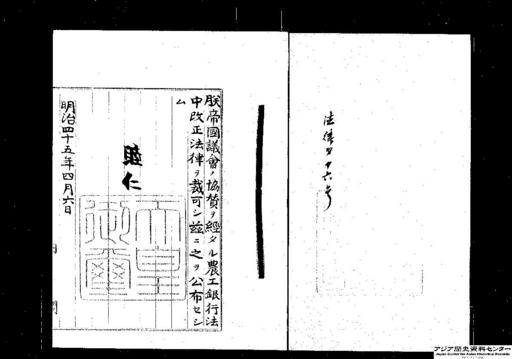 法律第十六号
朕帝國議會ノ協賛ヲ經タル農工銀行法
中改正法律ヲ裁可シ茲ニ之ヲ公布セシ
ム
睦仁
天皇御璽
明治四十五年四月六日
内閣
アジア歴史資料センター
Japan Center for Asian Historical Records